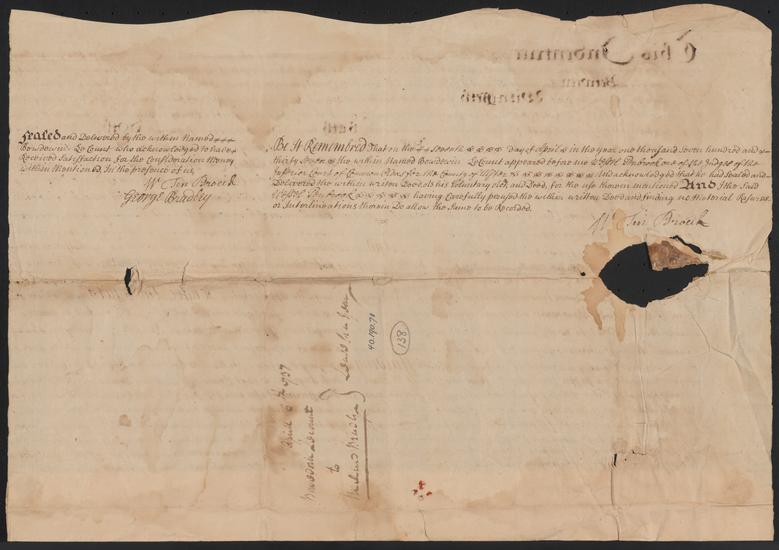 Sealed and Delivered by the within Named
Bowdewin Le Count who acknowledged to have
Received Satisfaction for the Consideration Money
within Mentioned. In the presence of us
Wm Ten Broeck
George Bradley
Be It Remembred That on the day of April in the year one thousand seven hundred and
thirty seven the within Named Bowdewin Le Count appeared before me one of the Judges of the
Inferior Court of Common Pleas for the County of Ulster And acknowledged that he had Sealed and
Delivered the within writen Deed as his voluntary Act and Deed, for the use therein mentioned And I the said
having Carefully perused the within written Deed and finding no Material Rasures
or Interlineations therein Do allow the Same to be Recorded.
Wm Ten Broeck
1737
to
Deed
40.190.71
138